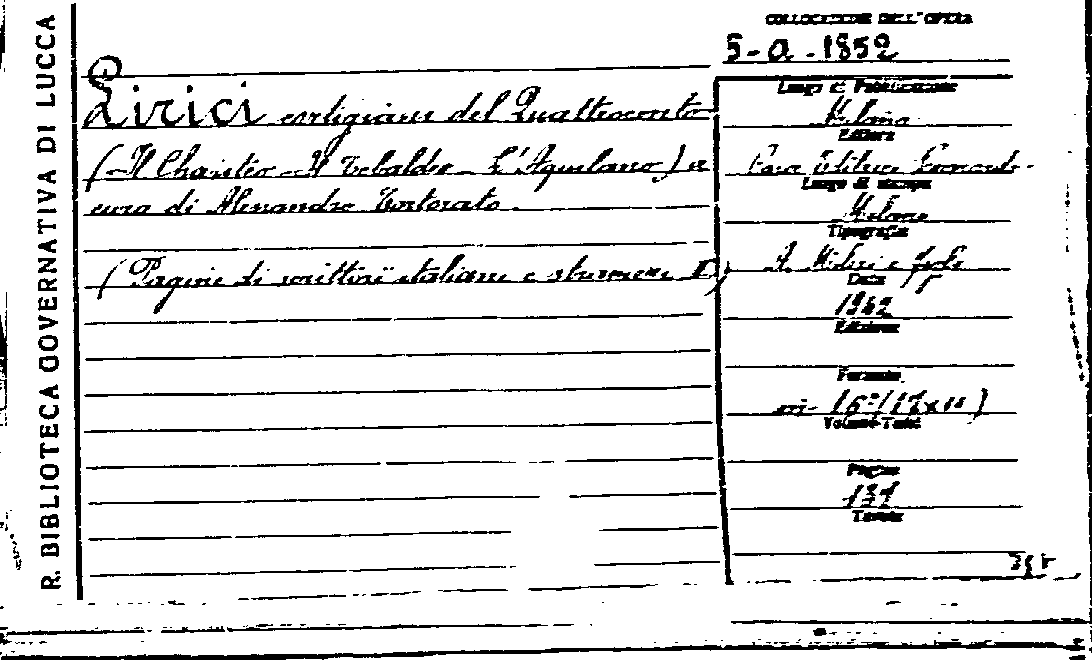 R. BIBLIOTECA GOVERNATIVA DI LUCCA
Lirici cortigiani del Quattrocento
(Il Chariteo - Il Tebaldeo - L'Aquilano) a
cura di Alessandro Tortorato.
(Pagine di scrittori italiani e stranieri
COLLOCAZIONE DELL'OPERA
5-a-1852
Luogo di Pubblicazione
Milano
Editore
Casa Editrice
Luogo di stampa
Milano
Tipografia
A. e figli
Data
1942
Edizione
Formato
in- 16°(17x11)
Volumi-Tomi
Pagine
Tavole